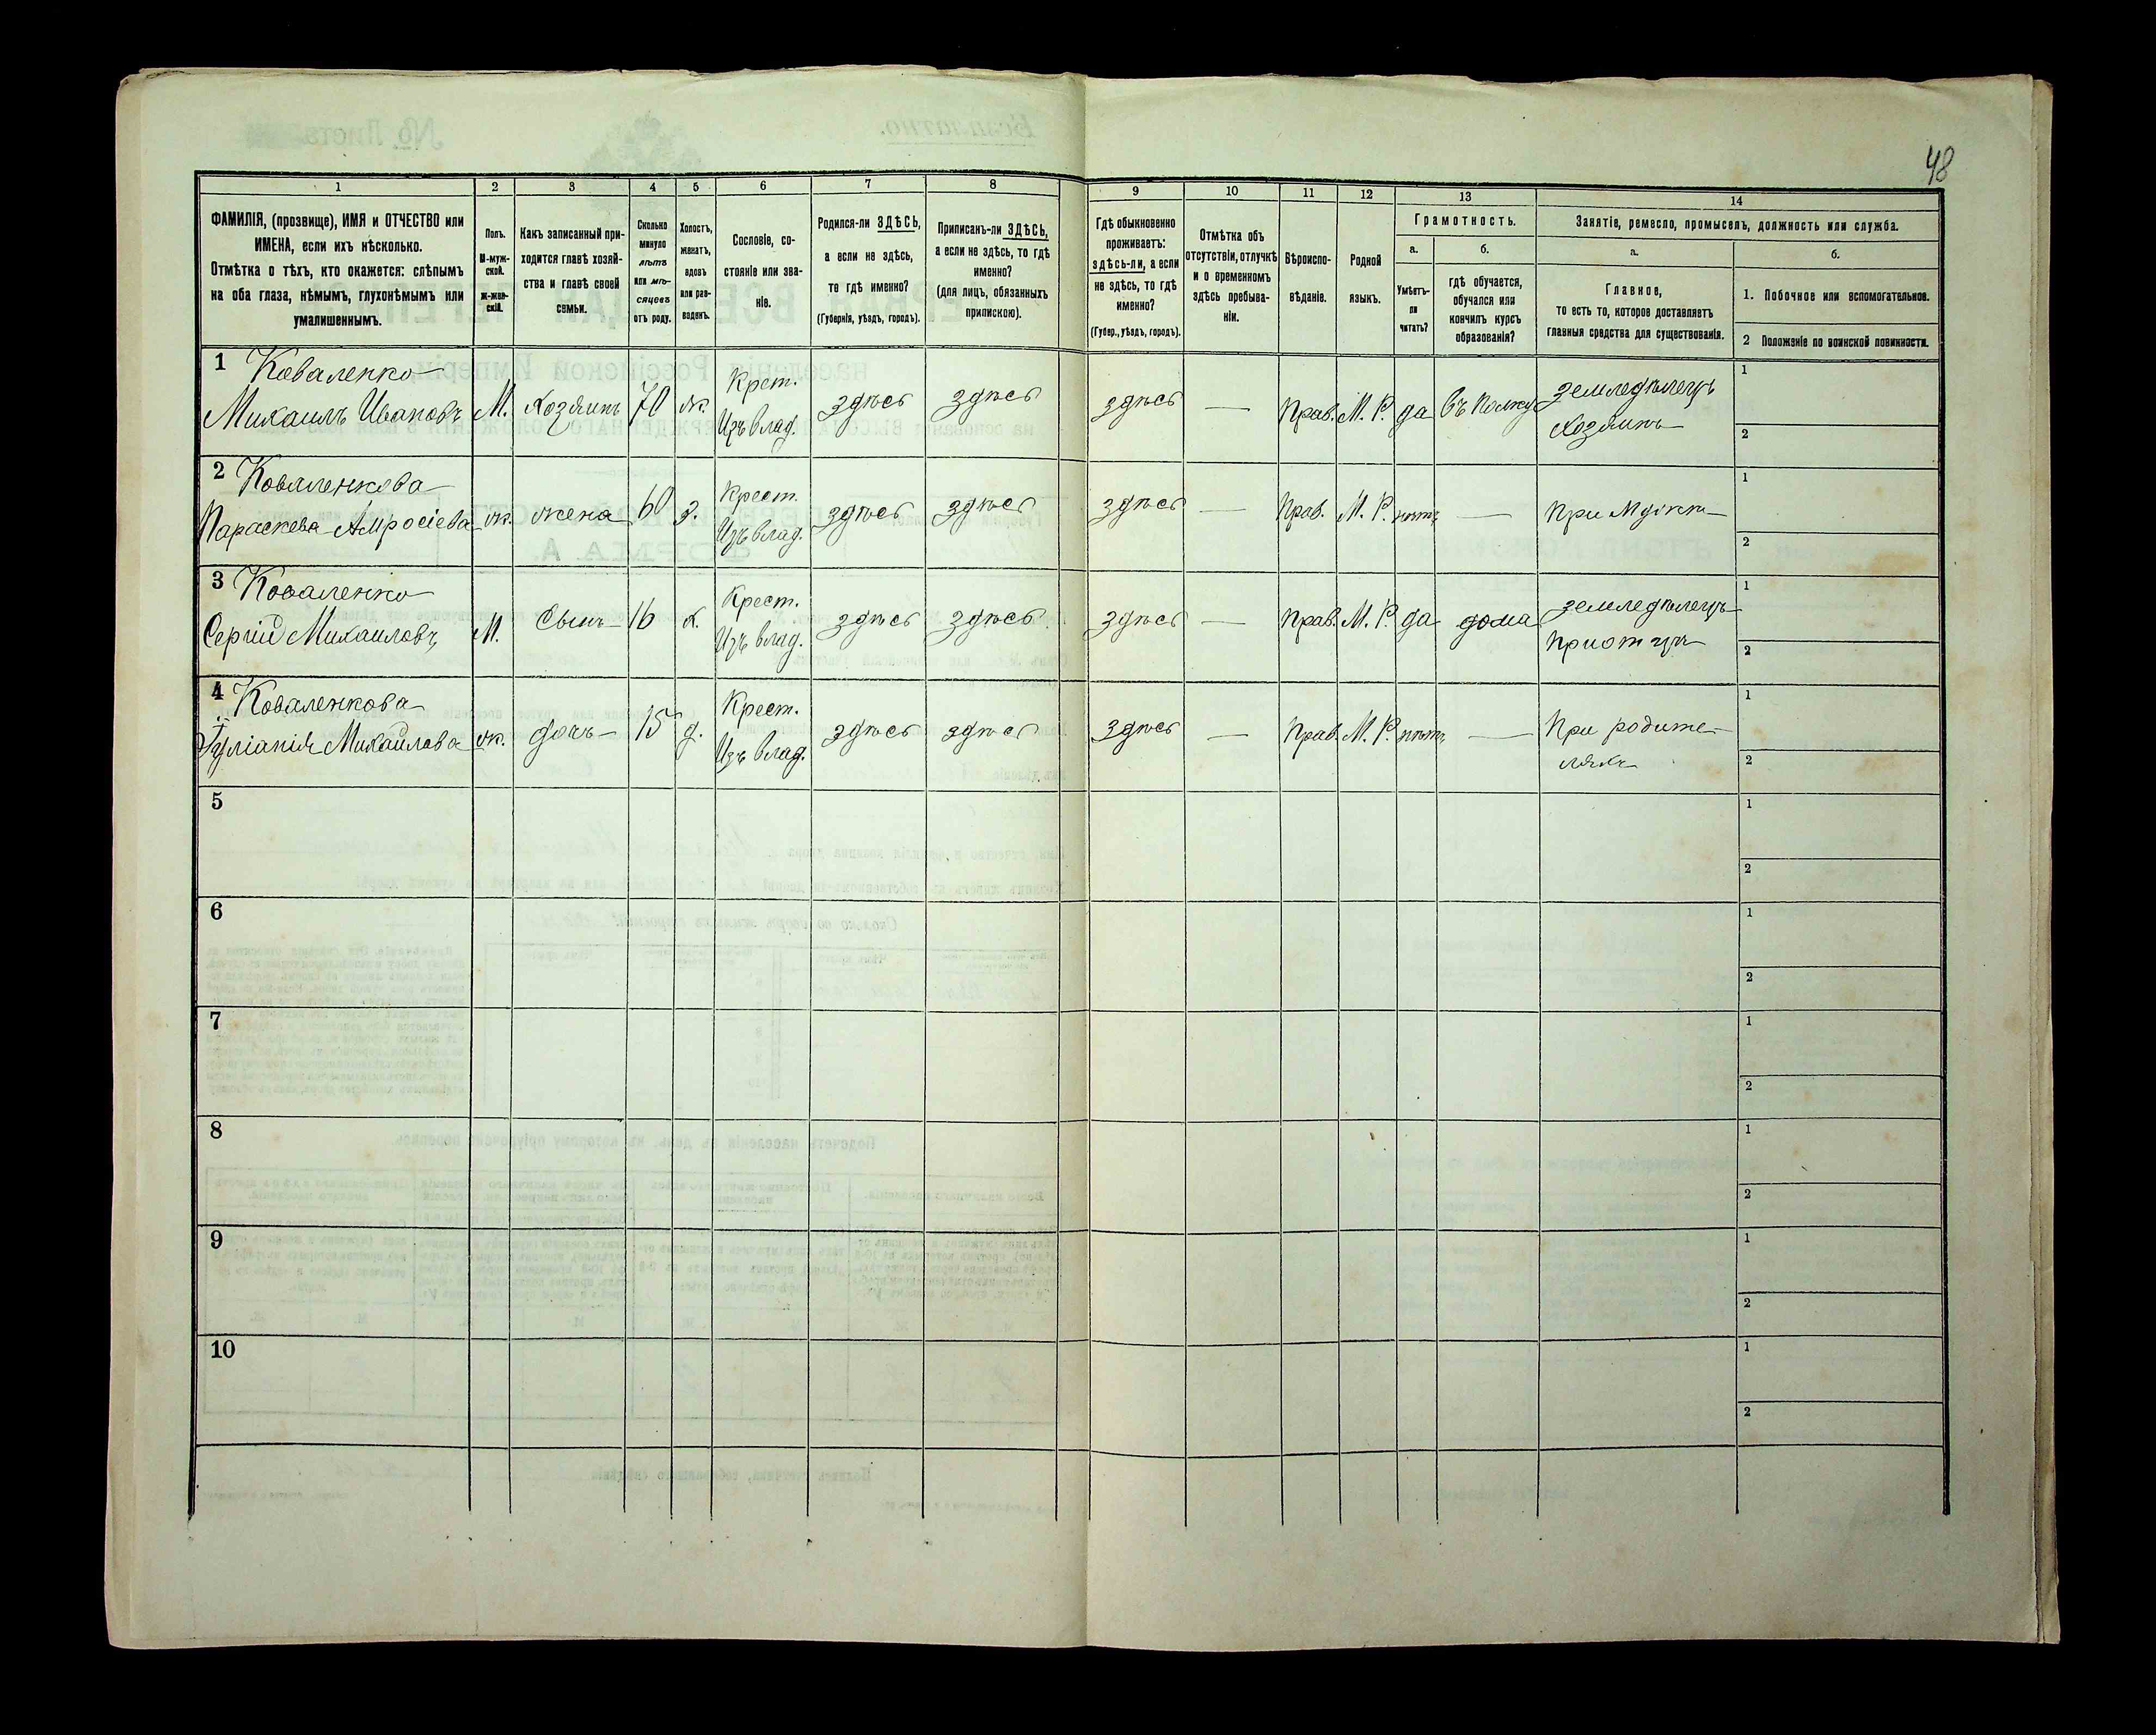 48
1 2 3 4 5 6 7 8 9 10 11 12 13 14
ФАМИЛІЯ, (прозвище), ИМЯ и ОТЧЕСТВО или
ИМЕНА, если ихъ нѣсколько.
Отмѣтка о тѣхъ, кто окажется: слѣпымъ
на оба глаза, нѣмымъ, глухонѣмымъ или
умалишеннымъ.
Полъ.
М-муж-
ской.
ж-жен-
скій.
Какъ записанный при-
ходится главѣ хозяй-
ства и главѣ своей
семьи.
Сколько
минуло
лѣтъ
или мѣ-
сяцевъ
отъ роду.
Холостъ,
женатъ,
вдовъ
или раз-
веденъ.
Сословіе, со-
стояніе или зва-
ніе.
Родился-ли ЗДѢСЬ,
а если не здѣсь,
то гдѣ именно?
(Губернія, уѣздъ, городъ).
Приписанъ-ли ЗДѢСЬ,
а если не здѣсь, то гдѣ
именно?
(для лицъ, обязанныхъ
припискою).
Гдѣ обыкновенно
проживаетъ:
здѣсь-ли, а если
не здѣсь, то гдѣ
именно?
(Губер., уѣздъ, городъ).
Отмѣтка объ
отсутствіи, отлучкѣ
и о временномъ
здѣсь пребыва-
ніи.
Вѣроиспо-
вѣданіе.
Родной
языкъ.
Грамотность.
а.
Умѣетъ-
ли
читать?
б.
гдѣ обучается,
обучался или
кончилъ курсъ
образованія?
Занятіе, ремесло, промыселъ, должность или служба.
а.
Главное,
то есть то, которое доставляетъ
главныя средства для существованія.
б.
1. Побочное или вспомогательное.
2 Положеніе по воинской повинности.
1 Коваленко
Михаилъ Ивановъ М. Хозяинъ 70 ж. Крест. Изъ влад. здѣсь здѣсь здѣсь — Прав. М. Р. да въ полку земледѣлецъ
хозяинъ
1
2
2 Коваленкова
Параскева Амросіева ж. жена 60 з. Крест. Изъ влад. здѣсь здѣсь здѣсь — Прав. М. Р. нѣтъ — При мужѣ
1
2
3 Коваленко
Сергій Михаиловъ М. Сынъ 16 х. Крест. Изъ влад. здѣсь здѣсь здѣсь — Прав. М. Р. да дома земледѣлецъ
при отцѣ
1
2
4 Коваленкова
Іуліанія Михаилова ж. дочь 15 д. Крест. Изъ влад. здѣсь здѣсь здѣсь — Прав. М. Р. нѣтъ — При родите-
ляхъ
1
2
5
1
2
6
1
2
7
1
2
8
1
2
9
1
2
10
1
2